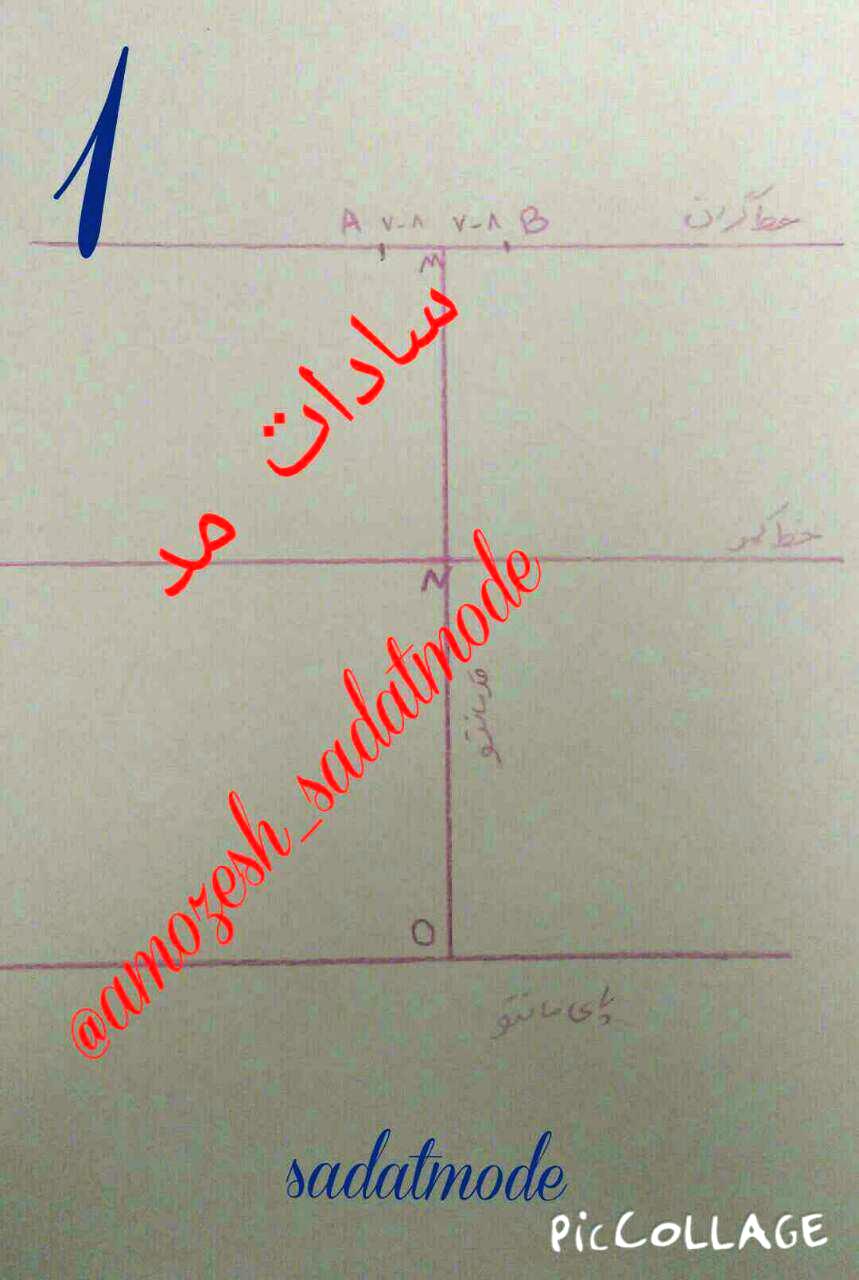 1
A ۷-۸ ۷-۸ B
خط گردن
M
سادات مد
خط کمر
N
قد مانتو
@amozesh_sadatmode
O
پای مانتو
sadatmode
PicCOLLAGE